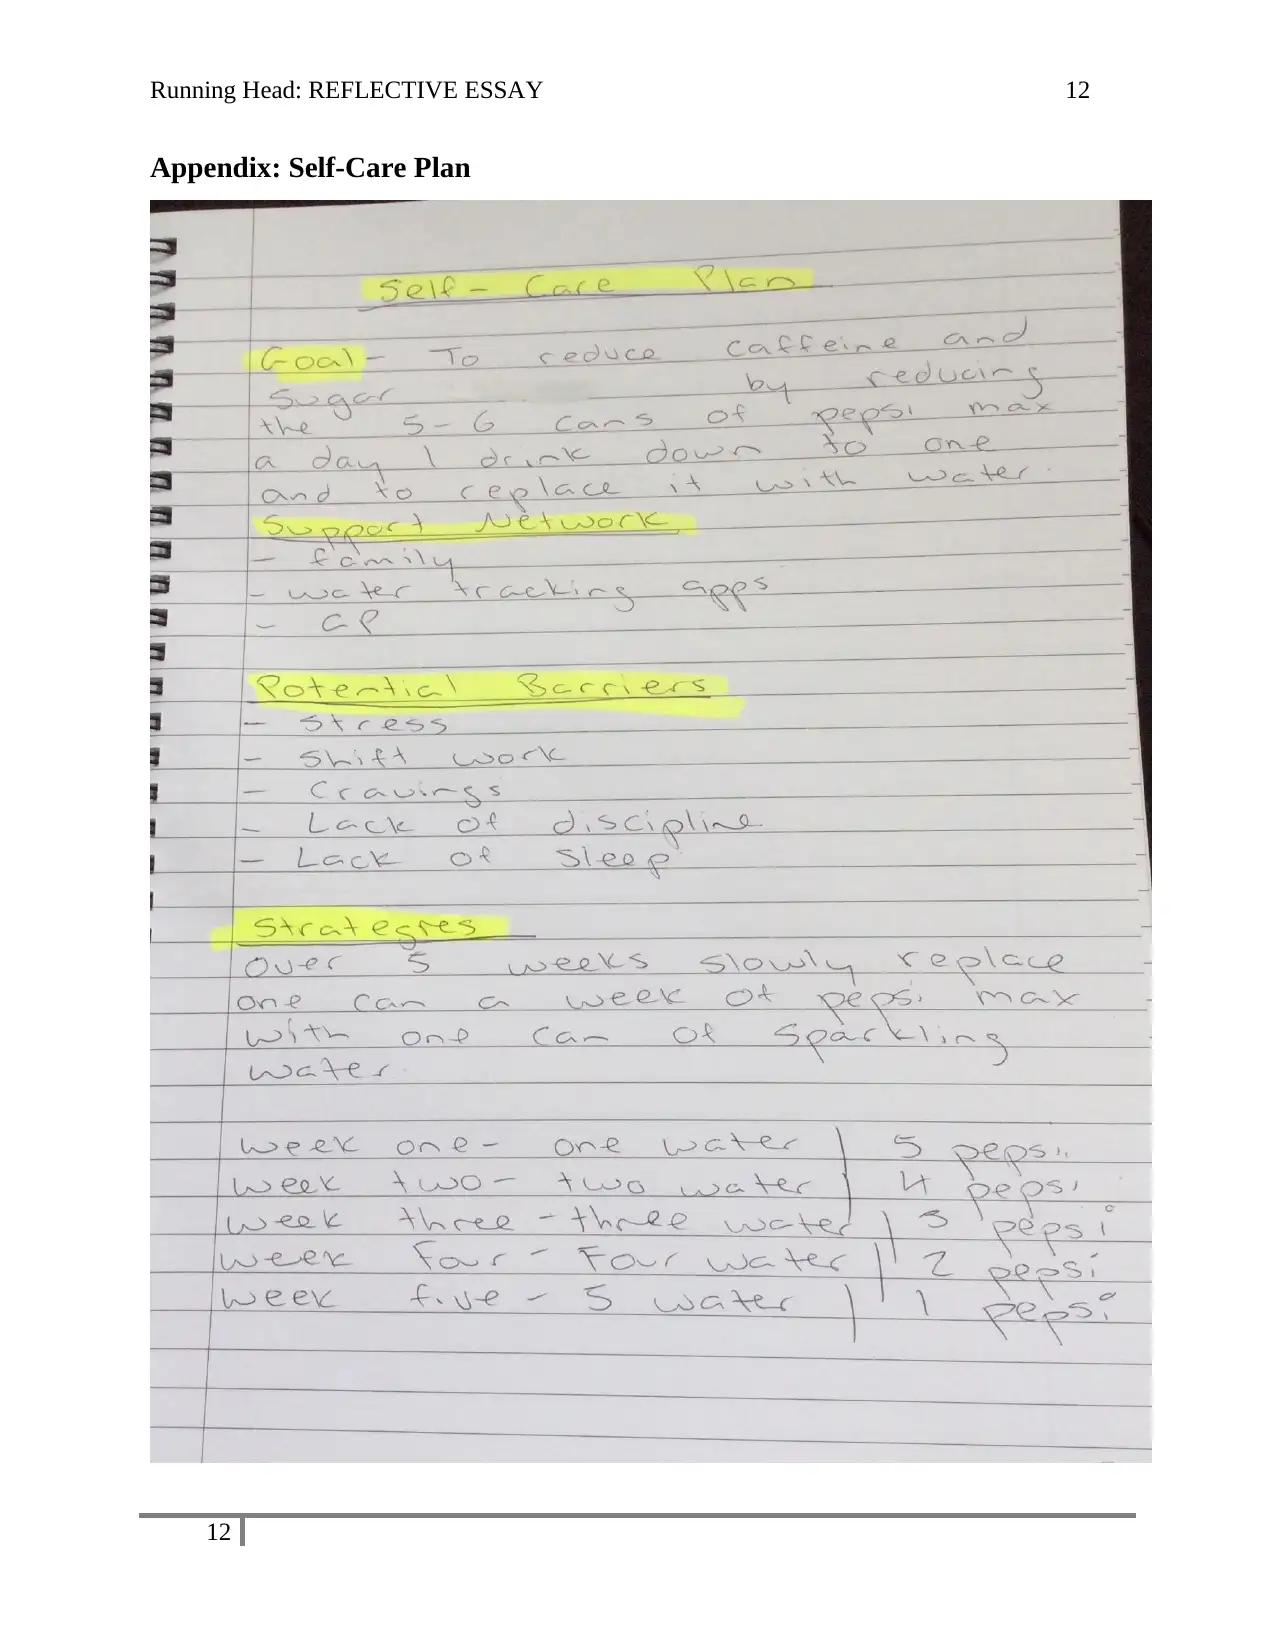 Running Head: REFLECTIVE ESSAY 12
Appendix: Self-Care Plan
Self - Care Plan
Goal - To reduce caffeine and
Sugar by reducing
the 5-6 cans of pepsi max
a day I drink down to one
and to replace it with water.
Support Network
- family
- water tracking apps
- GP
Potential Barriers
- Stress
- Shift work
- Cravings
- Lack of discipline
- Lack of Sleep
Strategies
Over 5 weeks slowly replace
one can a week of pepsi max
with one can of Sparkling
water.
week one - one water | 5 pepsi.
week two - two water | 4 pepsi
week three - three water | 3 pepsi
week Four - Four water | 2 pepsi
week five - 5 water | 1 pepsi
12